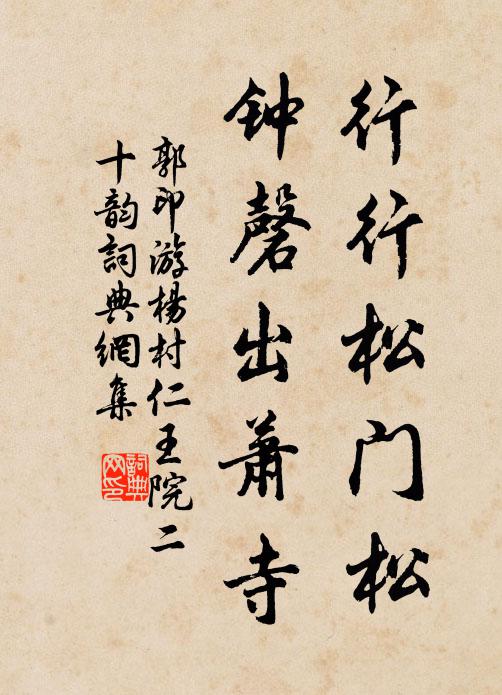 行行松门松
钟磬出萧寺
郭印游杨村仁王院二
十韵词典網集
詞典网印